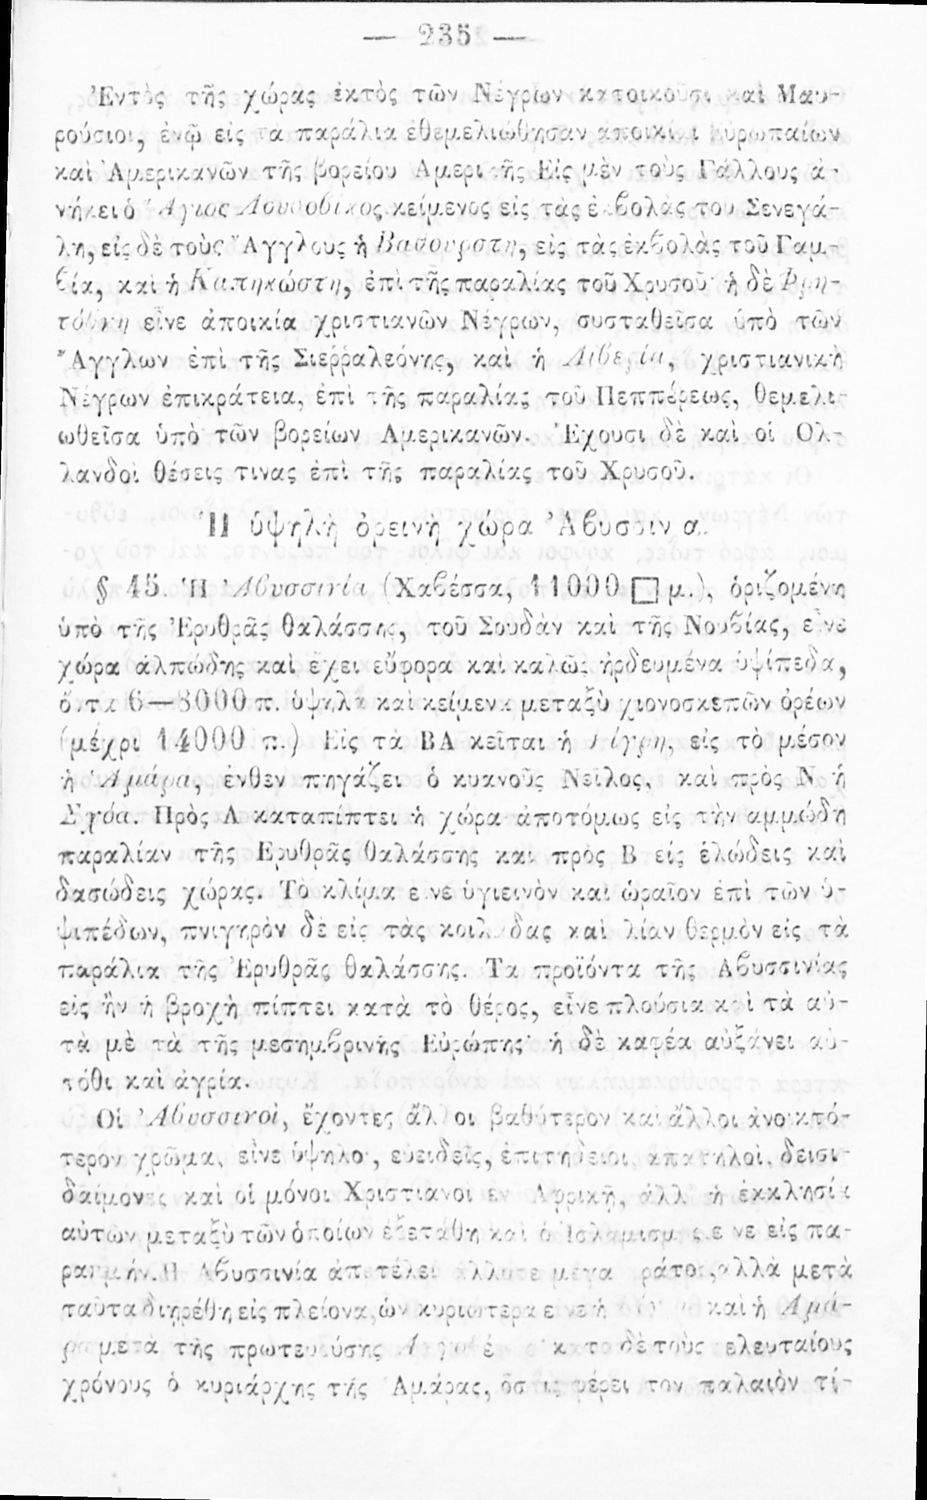 — 235 —
Ἐντὸς τῆς χώρας ἐκτὸς τῶν Νέγρων κατοικοῦσι καὶ Μαυ-
ρούσιοι, ἐνῷ εἰς τα παράλια ἐθεμελιώθησαν ἀποικίαι Εὐρωπαίων
καὶ Ἀμερικανῶν τῆς βορείου Ἀμερικῆς Εἰς μὲν τοὺς Γάλλους ἀ-
νήκει ὁ Ἅγιος Λουδοβῖκος κείμενος εἰς τὰς ἐκβολὰς του Σενεγά-
λη, εἰς δὲ τοὺς Ἄγγλους ἡ Βαθουρστη, εἰς τὰς ἐκβολὰς τοῦ Γαμ-
βία, καὶ ἡ Καπηκώστη, ἐπὶ τῆς παραλίας τοῦ Χρυσοῦ· ἡ δὲ
εἶνε ἀποικία χριστιανῶν Νέγρων, συσταθεῖσα ὑπὸ τῶν
Ἄγγλων ἐπὶ τῆς Σιερῥαλεόνης, καὶ ἡ Λιβερία, χριστιανικὴ
Νέγρων ἐπικράτεια, ἐπὶ τῆς παραλίας τοῦ Πεππέρεως, θεμελι-
ωθεῖσα ὑπὸ τῶν βορείων Ἀμερικανῶν. Ἔχουσι δὲ καὶ οἱ Ὁλ-
λανδοὶ θέσεις τινας ἐπὶ τῆς παραλίας τοῦ Χρυσοῦ.
Ἡ ὑψηλὴ ὀρεινὴ χώρα Ἀβυσσινία.
§ 45. Ἡ Ἀβυσσινία (Χαβέσσα, 11000 □ μ.), ὁριζομένη
ὑπὸ τῆς Ἐρυθρᾶς θαλάσσης, τοῦ Σουδὰν καὶ τῆς Νουβίας, εἶνε
χώρα ἀλπώδης καὶ ἔχει εὔφορα καὶ καλῶς ἠρδευμένα ὑψίπεδα,
ὄντα 6—8000 π. ὑψηλὰ καὶ κείμενα μεταξὺ χιονοσκεπῶν ὀρέων
(μέχρι 14000 π.) Εἰς τὰ ΒΑ κεῖται ἡ Τίγρη, εἰς τὸ μέσον
ἡ Ἀμάρα, ἔνθεν πηγάζει ὁ κυανοῦς Νεῖλος, καὶ πρὸς Ν ἡ
Σχόα. Πρὸς Α καταπίπτει ἡ χώρα ἀποτόμως εἰς τὴν αμμώδη
παραλίαν τῆς Ἐρυθρᾶς θαλάσσης καὶ πρὸς Β εἰς ἑλώδεις καὶ
δασώδεις χώρας. Τὸ κλίμα εἶνε ὑγιεινὸν καὶ ὡραῖον ἐπὶ τῶν ὑ-
ψιπέδων, πνιγηρὸν δὲ εἰς τὰς κοιλάδας καὶ λίαν θερμὸν εἰς τὰ
παράλια τῆς Ἐρυθρᾶς θαλάσσης. Τα προϊόντα τῆς Ἀβυσσινίας
εἰς ἣν ἡ βροχὴ πίπτει κατὰ τὸ θέρος, εἶνε πλούσια καὶ τὰ αὐ-
τὰ μὲ τὰ τῆς μεσημβρινῆς Εὐρώπης· ἡ δὲ καφέα αὐξάνει αὐ-
τόθι καὶ ἀγρία.
Οἱ Ἀβυσσινοὶ, ἔχοντες ἄλλοι βαθύτερον καὶ ἄλλοι ἀνοικτό-
τερον χρῶμα, εἶνε ὑψηλοὶ, εὐειδεῖς, ἐπιτήδειοι, ἀπατηλοὶ, δεισι-
δαίμονες καὶ οἱ μόνοι Χριστιανοὶ ἐν Ἀφρικῇ, ἀλλ ἡ ἐκκλησία
αὐτῶν μεταξὺ τῶν ὁποίων ἐξετάθη καὶ ὁ Ἰσλαμισμὸς εἶνε εἰς πα-
ρακμήν. Ἡ Ἀβυσσινία ἀπετέλει ἄλλοτε μέγα κράτος, ἀλλὰ μετὰ
ταῦτα διῃρέθη εἰς πλείονα, ὧν κυριώτερα εἶνε ἡ καὶ ἡ Ἀμά-
ρα μετὰ τῆς πρωτευούσης δὲ τοὺς τελευταίους
χρόνους ὁ κυριάρχης τῆς Ἀμάρας, ὅστις φέρει τον παλαιὸν τί-